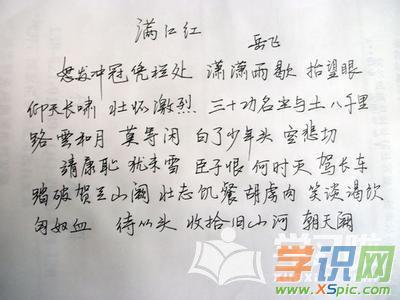 满江红
岳飞
怒发冲冠 凭栏处 潇潇雨歇 抬望眼
仰天长啸 壮怀激烈 三十功名尘与土 八千里
路 雲和月 莫等闲 白了少年头 空悲切
靖康耻 犹未雪 臣子恨 何时灭 驾长车
踏破贺兰山阙 壮志饥餐 胡虏肉 笑谈渴饮
匈奴血 待从头 收拾旧山河 朝天阙
学识网
www.XSpic.com